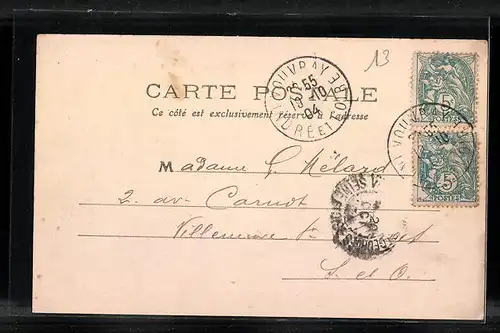 13
CARTE POSTALE
Ce côté est exclusivement réservé à l'adresse
VOUVRAY
55
19 -10
04
INDRE ET LOIRE
5c
POSTES
5c
POSTES
Madame G. Mélard
2. av. Carnot
Villeneuve St
S. et O.